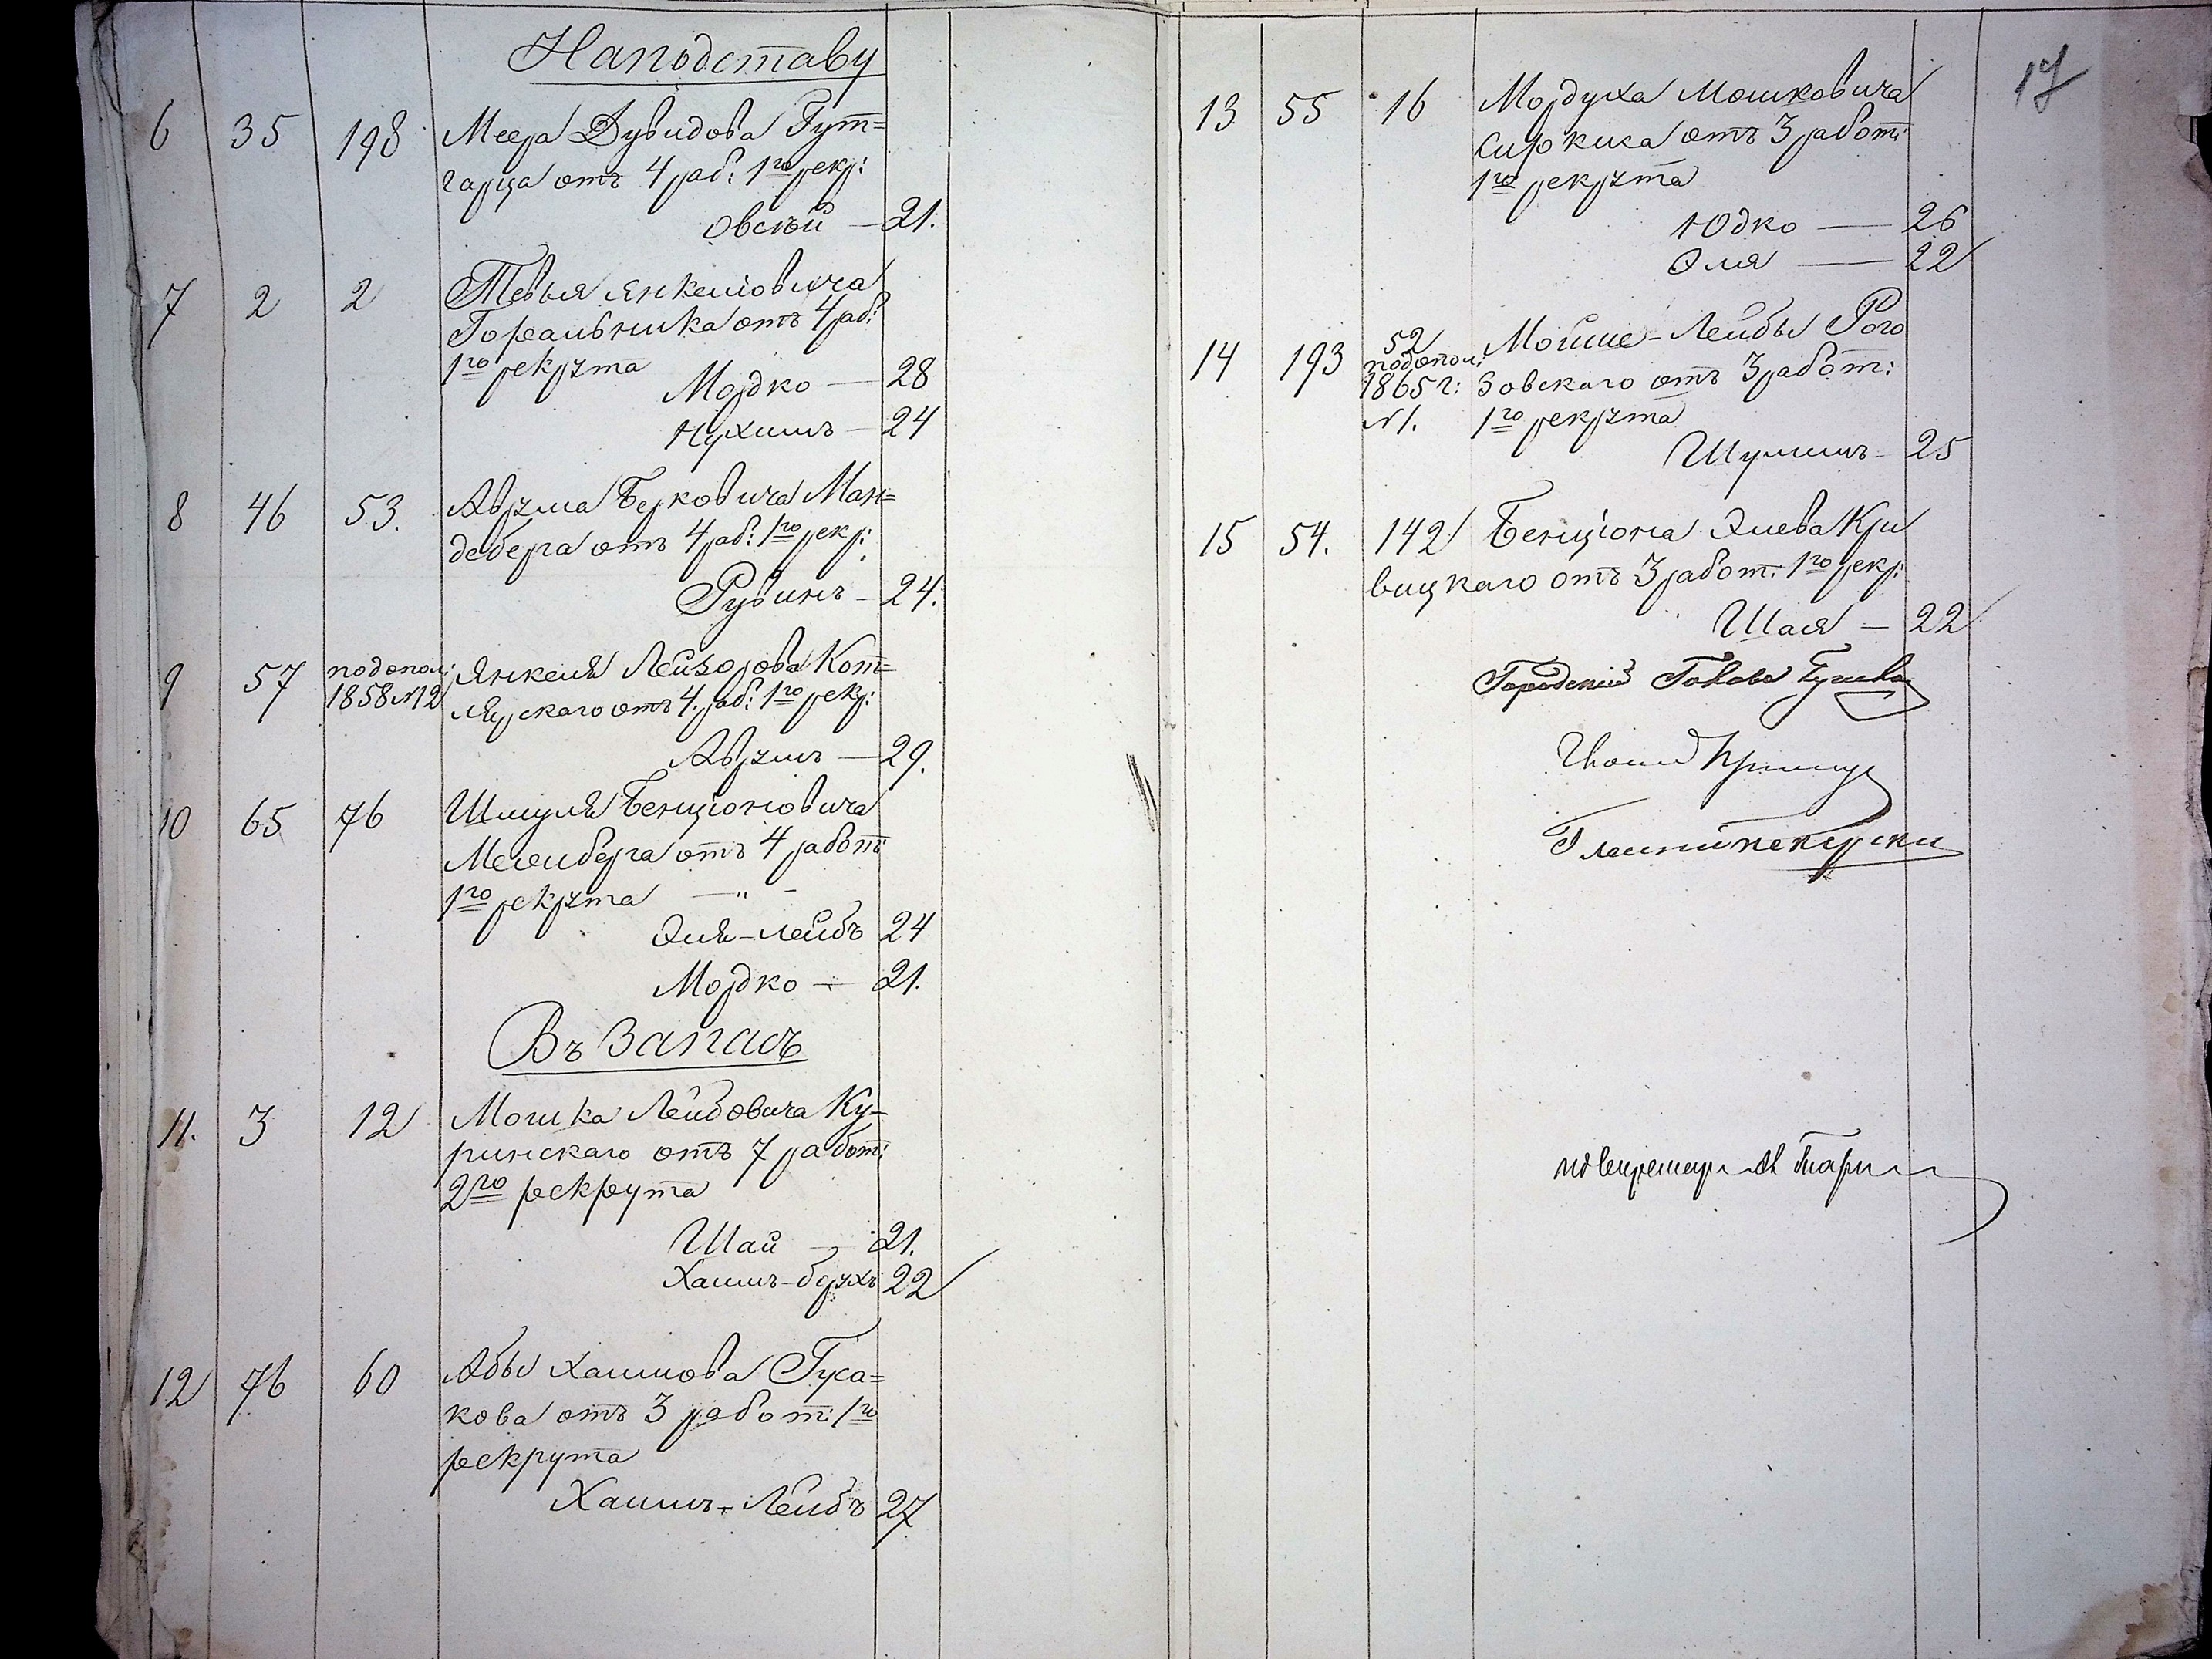 Наподставу
6 35 198 Меера Дувидова Гут=
гарца отъ 4 раб: 1го рекр:
Овсѣй — 21.
7 2 2 Тевья Янкелiовича
Горальника отъ 4 раб:
1го рекрута
Мордко — 28
Нухимъ — 24
8 46 53. Аврума Берковича Ман=
деберга отъ 4 раб: 1го рекр:
Рувинъ — 24.
9 57 подопол: Янкеля Лейзорова Кот=
1858 №12 лярскаго отъ 4. раб: 1го рекр:
Аврумъ — 29.
10 65 76 Шмуля Бенцiоновича
отъ 4 работ:
1го рекрута — " —
Эля-Лейбъ 24
Мордко — 21.
Въ Запасъ
11. 3 12 Мошка Лейбовича Ку=
ринскаго отъ 7 работ:
2го рекрута
Шай — 21.
Хаимъ-борухъ 22
12 76 60 Абы Хаимова Гуса=
кова отъ 3 работ: 1го
рекрута
Хаимъ-Лейбъ 27
17
13 55 16 Мордуха Мошковича
отъ 3 работ:
1го рекрута
Юдко — 26
Эля — 22
14 193 52 Мойше-Лейбы Рого
подопол:
1865 г: зовскаго отъ 3 работ:
№1. 1го рекрута
Шулимъ — 25
15 54. 142 Бенцiона Элева Кри
вицкаго отъ 3 работ: 1го рекр:
Шая — 22
Городскiй Голова